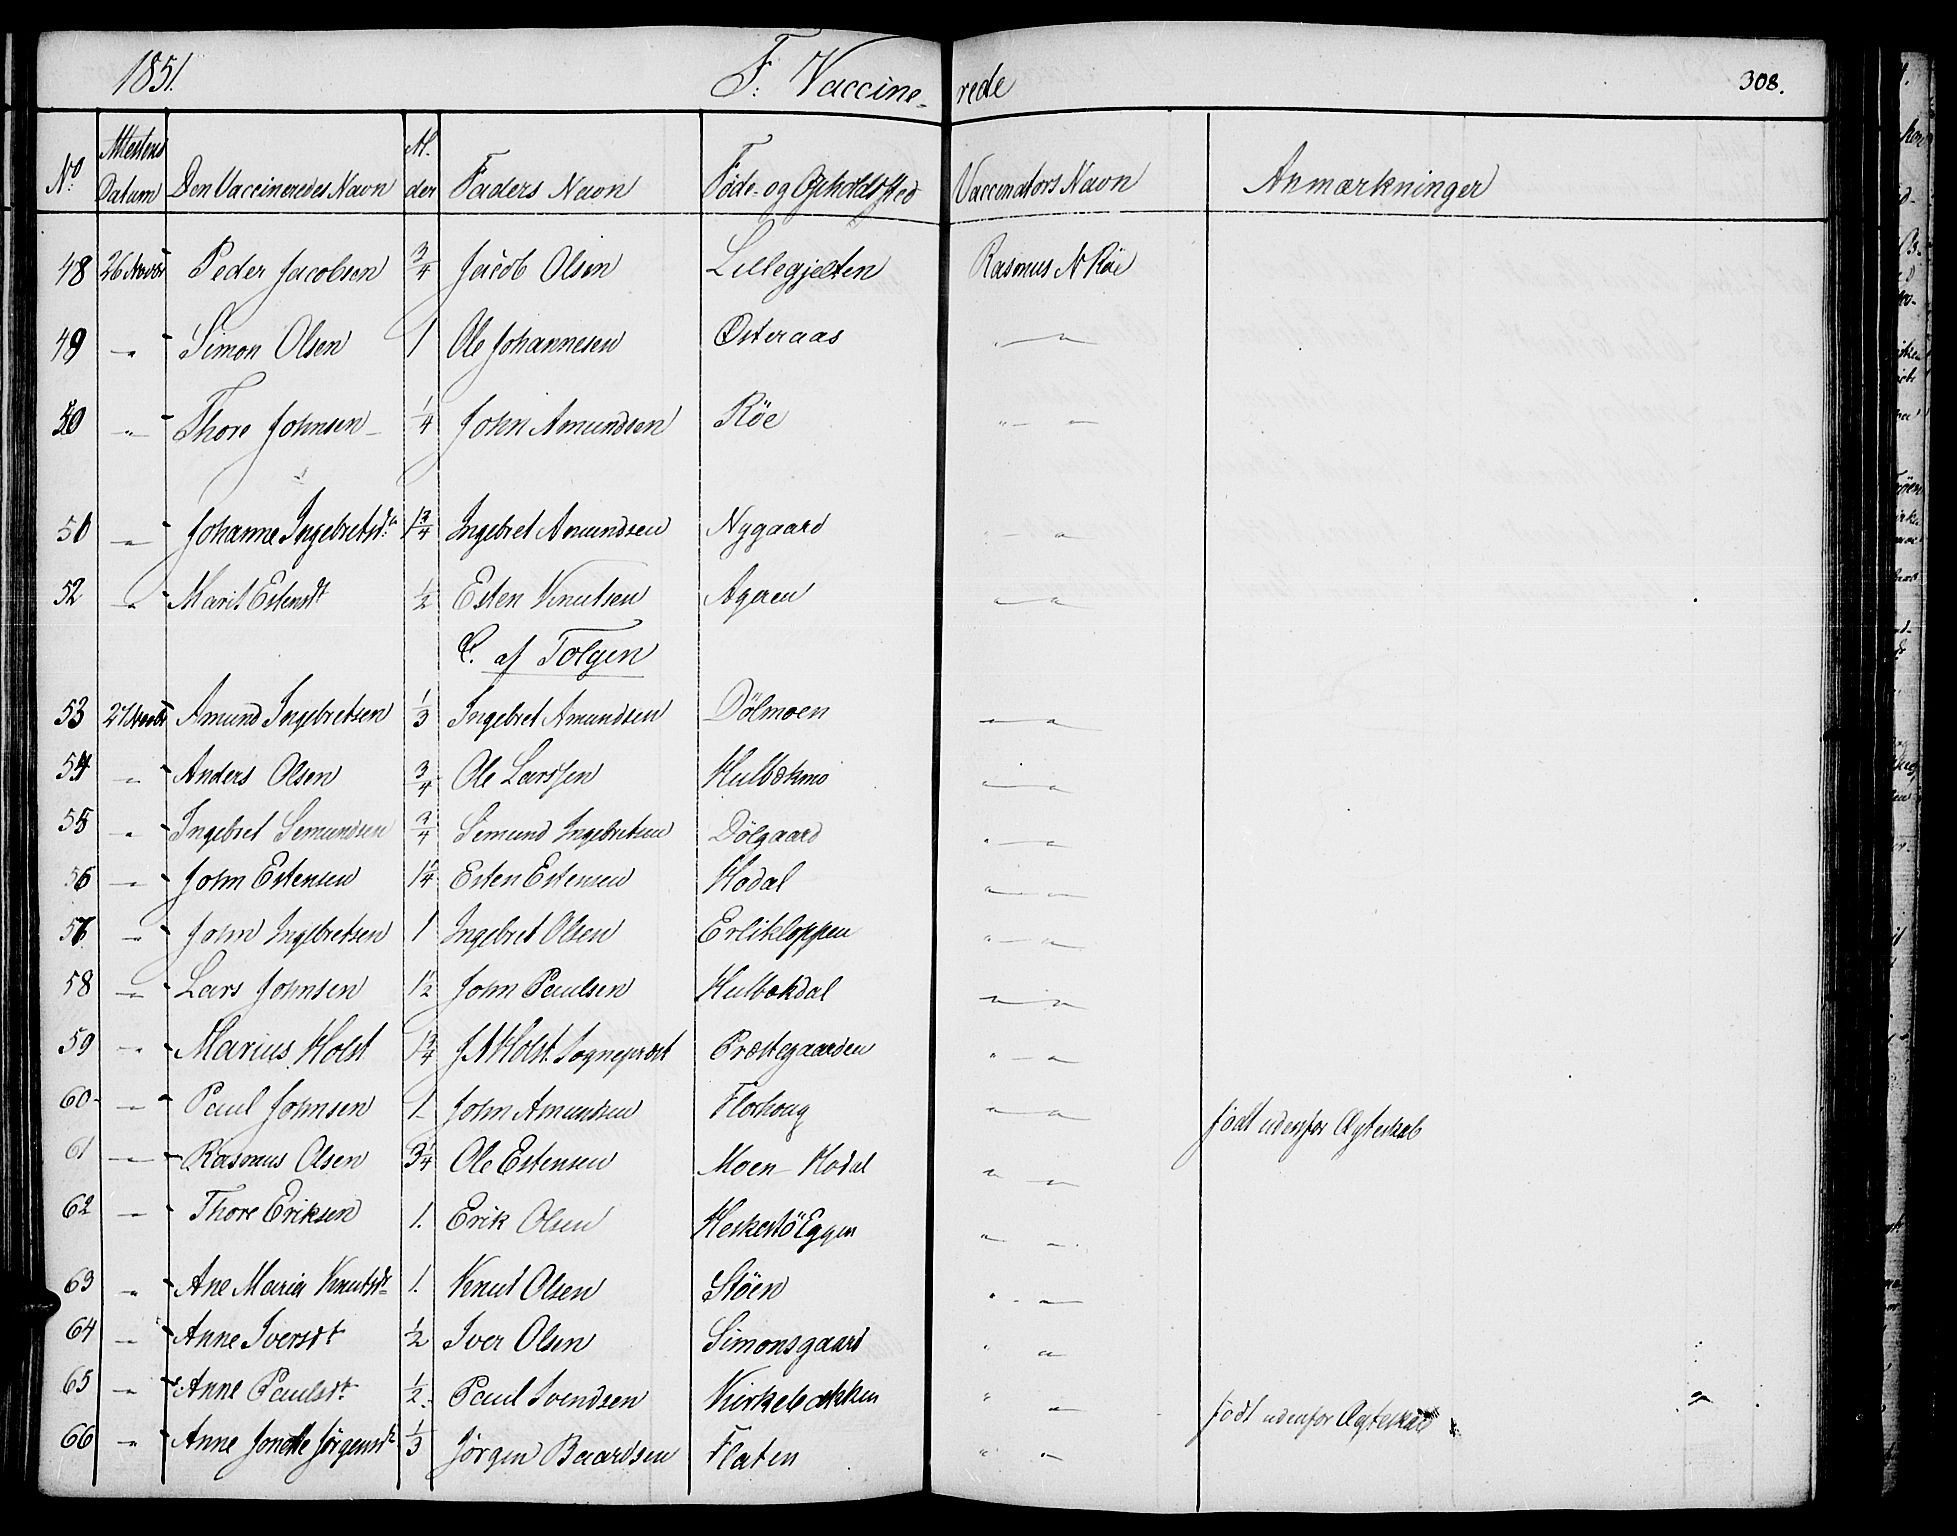 1851. F: Vaccine- rede 308.
No Attestens Datum Den Vaccineredes Navn Al. der Faders Navn Føde- og Opholdssted Vaccinators Navn Anmærkninger
48 26 Novbr Peder Jacobsen 3/4 Jacob Olsen Lillegjelten Rasmus N Röe
49 " Simon Olsen 1 Ole Johannesen Østeraas " "
50 " Thore Johnsen 1/4 John Amundsen Röe " "
51 " Johanne Ingebretsdtr 1 3/4 Ingebret Amundsen Nygaard " "
52 " Marit Estensdt 1/2 Esten Knutsen Ageren " "
C. af Tolgen
53 27 Novbr Amund Ingebretsen 1/3 Ingebret Amundsen Dölmoen " "
54 " Anders Olsen 3/4 Ole Larssen Hulbækmo " "
55 " Ingebret Semundsen 3/4 Semund Ingebretsen Dölgaard " "
56 " John Estensen 1 1/4 Esten Estensen Hodal " "
57 " John Ingebretsen 1 Ingebret Olsen Erlikloppen " "
58 " Lars Johnsen 1 1/2 John Paulsen Hulbækdal " "
59 " Marius Holst 1 3/4 J N Holst. Sognepræst Præstegaarden " "
60 " Paul Johnsen 1 John Amundsen " " født udenfor Ægteskab
61 " Rasmus Olsen 3 1/4 Ole Estensen Moen Hodal " "
62 " Thore Eriksen 1. Erik Olsen Eggen " "
63 " Ane Maria Knutsdt 1. Knud Olsen Støen " "
64 " Anne Iversdt 1/2 Iver Olsen Simonsgaard " "
65 " Anne Paulsdt 1/2 Paul Svendsen Kirkebækken " " født udenfor Ægteskab
66 " Anne Jonette Jørgensdt 1/3 Jørgen Baardsen Flaten " "